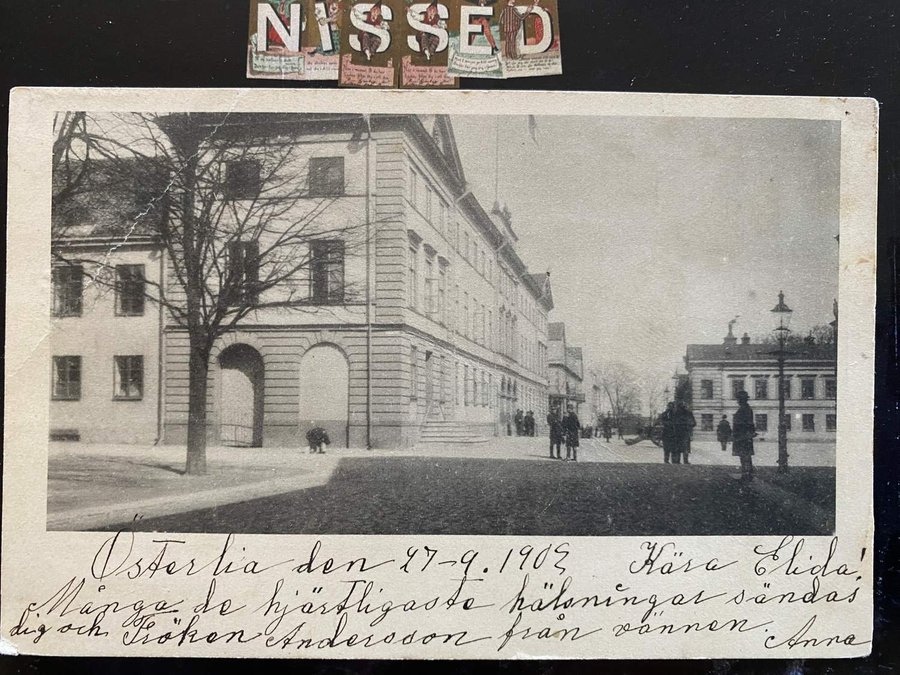 NISSED
Österlia den 27-9. 1902 Kära Elida!
Många de hjärtligaste hälsningar sändas
dig och Fröken Andersson från vännen. Anna